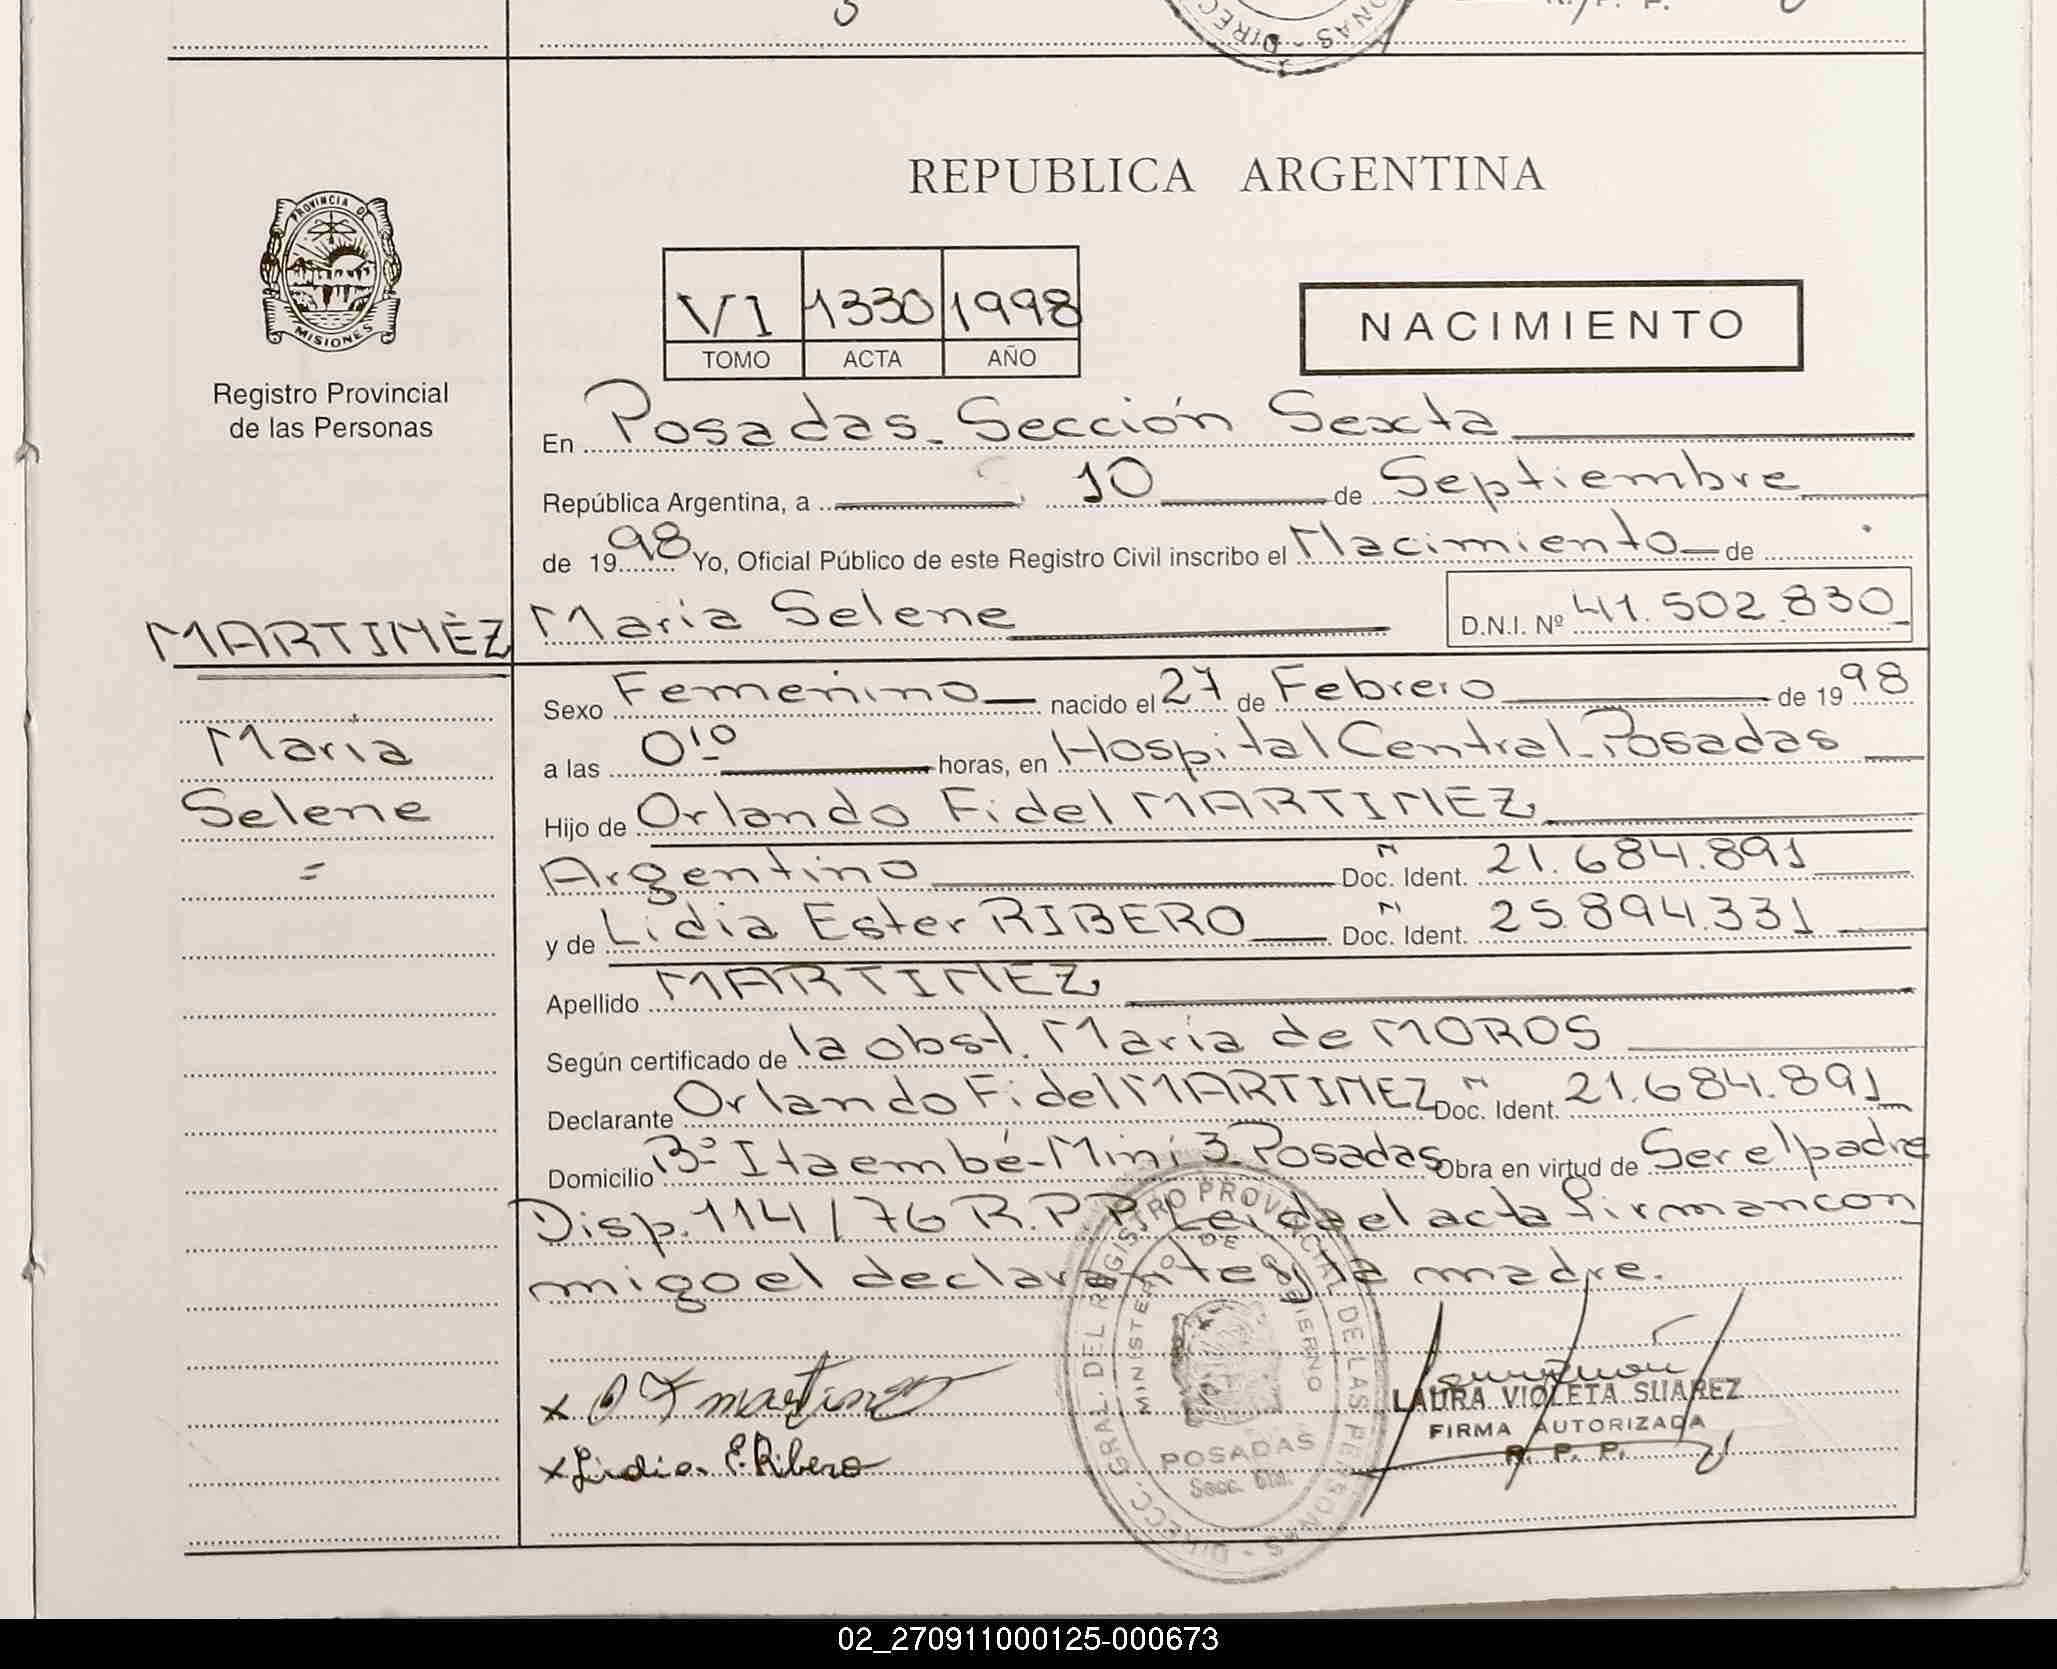 REPUBLICA ARGENTINA
PROVINCIA DE
MISIONES
Registro Provincial
de las Personas
VI 1330 1998
TOMO ACTA AÑO
NACIMIENTO
En Posadas - Sección Sexta
República Argentina, a 10 de Septiembre
de 1998 Yo, Oficial Público de este Registro Civil inscribo el Nacimiento de
MARTINEZ
María Selene D.N.I. Nº 41.502.830
María
Selene
=
Sexo Femenino nacido el 27 de Febrero de 1998
a las 0'10 horas, en Hospital Central - Posadas
Hijo de Orlando Fidel MARTINEZ
Argentino Doc. Ident. N 21.684.891
y de Lidia Ester RIBERO Doc. Ident. N 25.894.331
Apellido MARTINEZ
Según certificado de la obst. María de MOROS
Declarante Orlando Fidel MARTINEZ Doc. Ident. N 21.684.891
Domicilio Bº Itaembé-Mini 3 - Posadas Obra en virtud de Ser el padre
Disp. 114/76 R.P.P. Leida el acta firman con
migo el declarante y la madre.
x O F Martinez
x Lidia E. Ribero
LAURA VIOLETA SUAREZ
FIRMA AUTORIZADA
R. P. P.
DIRECC. GRAL. DEL REGISTRO PROVINCIAL DE LAS PERSONAS
MINISTERIO DE GOBIERNO
POSADAS
Secc. 6ta.
02_270911000125-000673